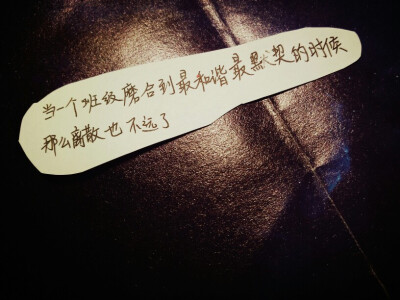 当一个班级磨合到最和谐最默契的时候
那么离散也不远了